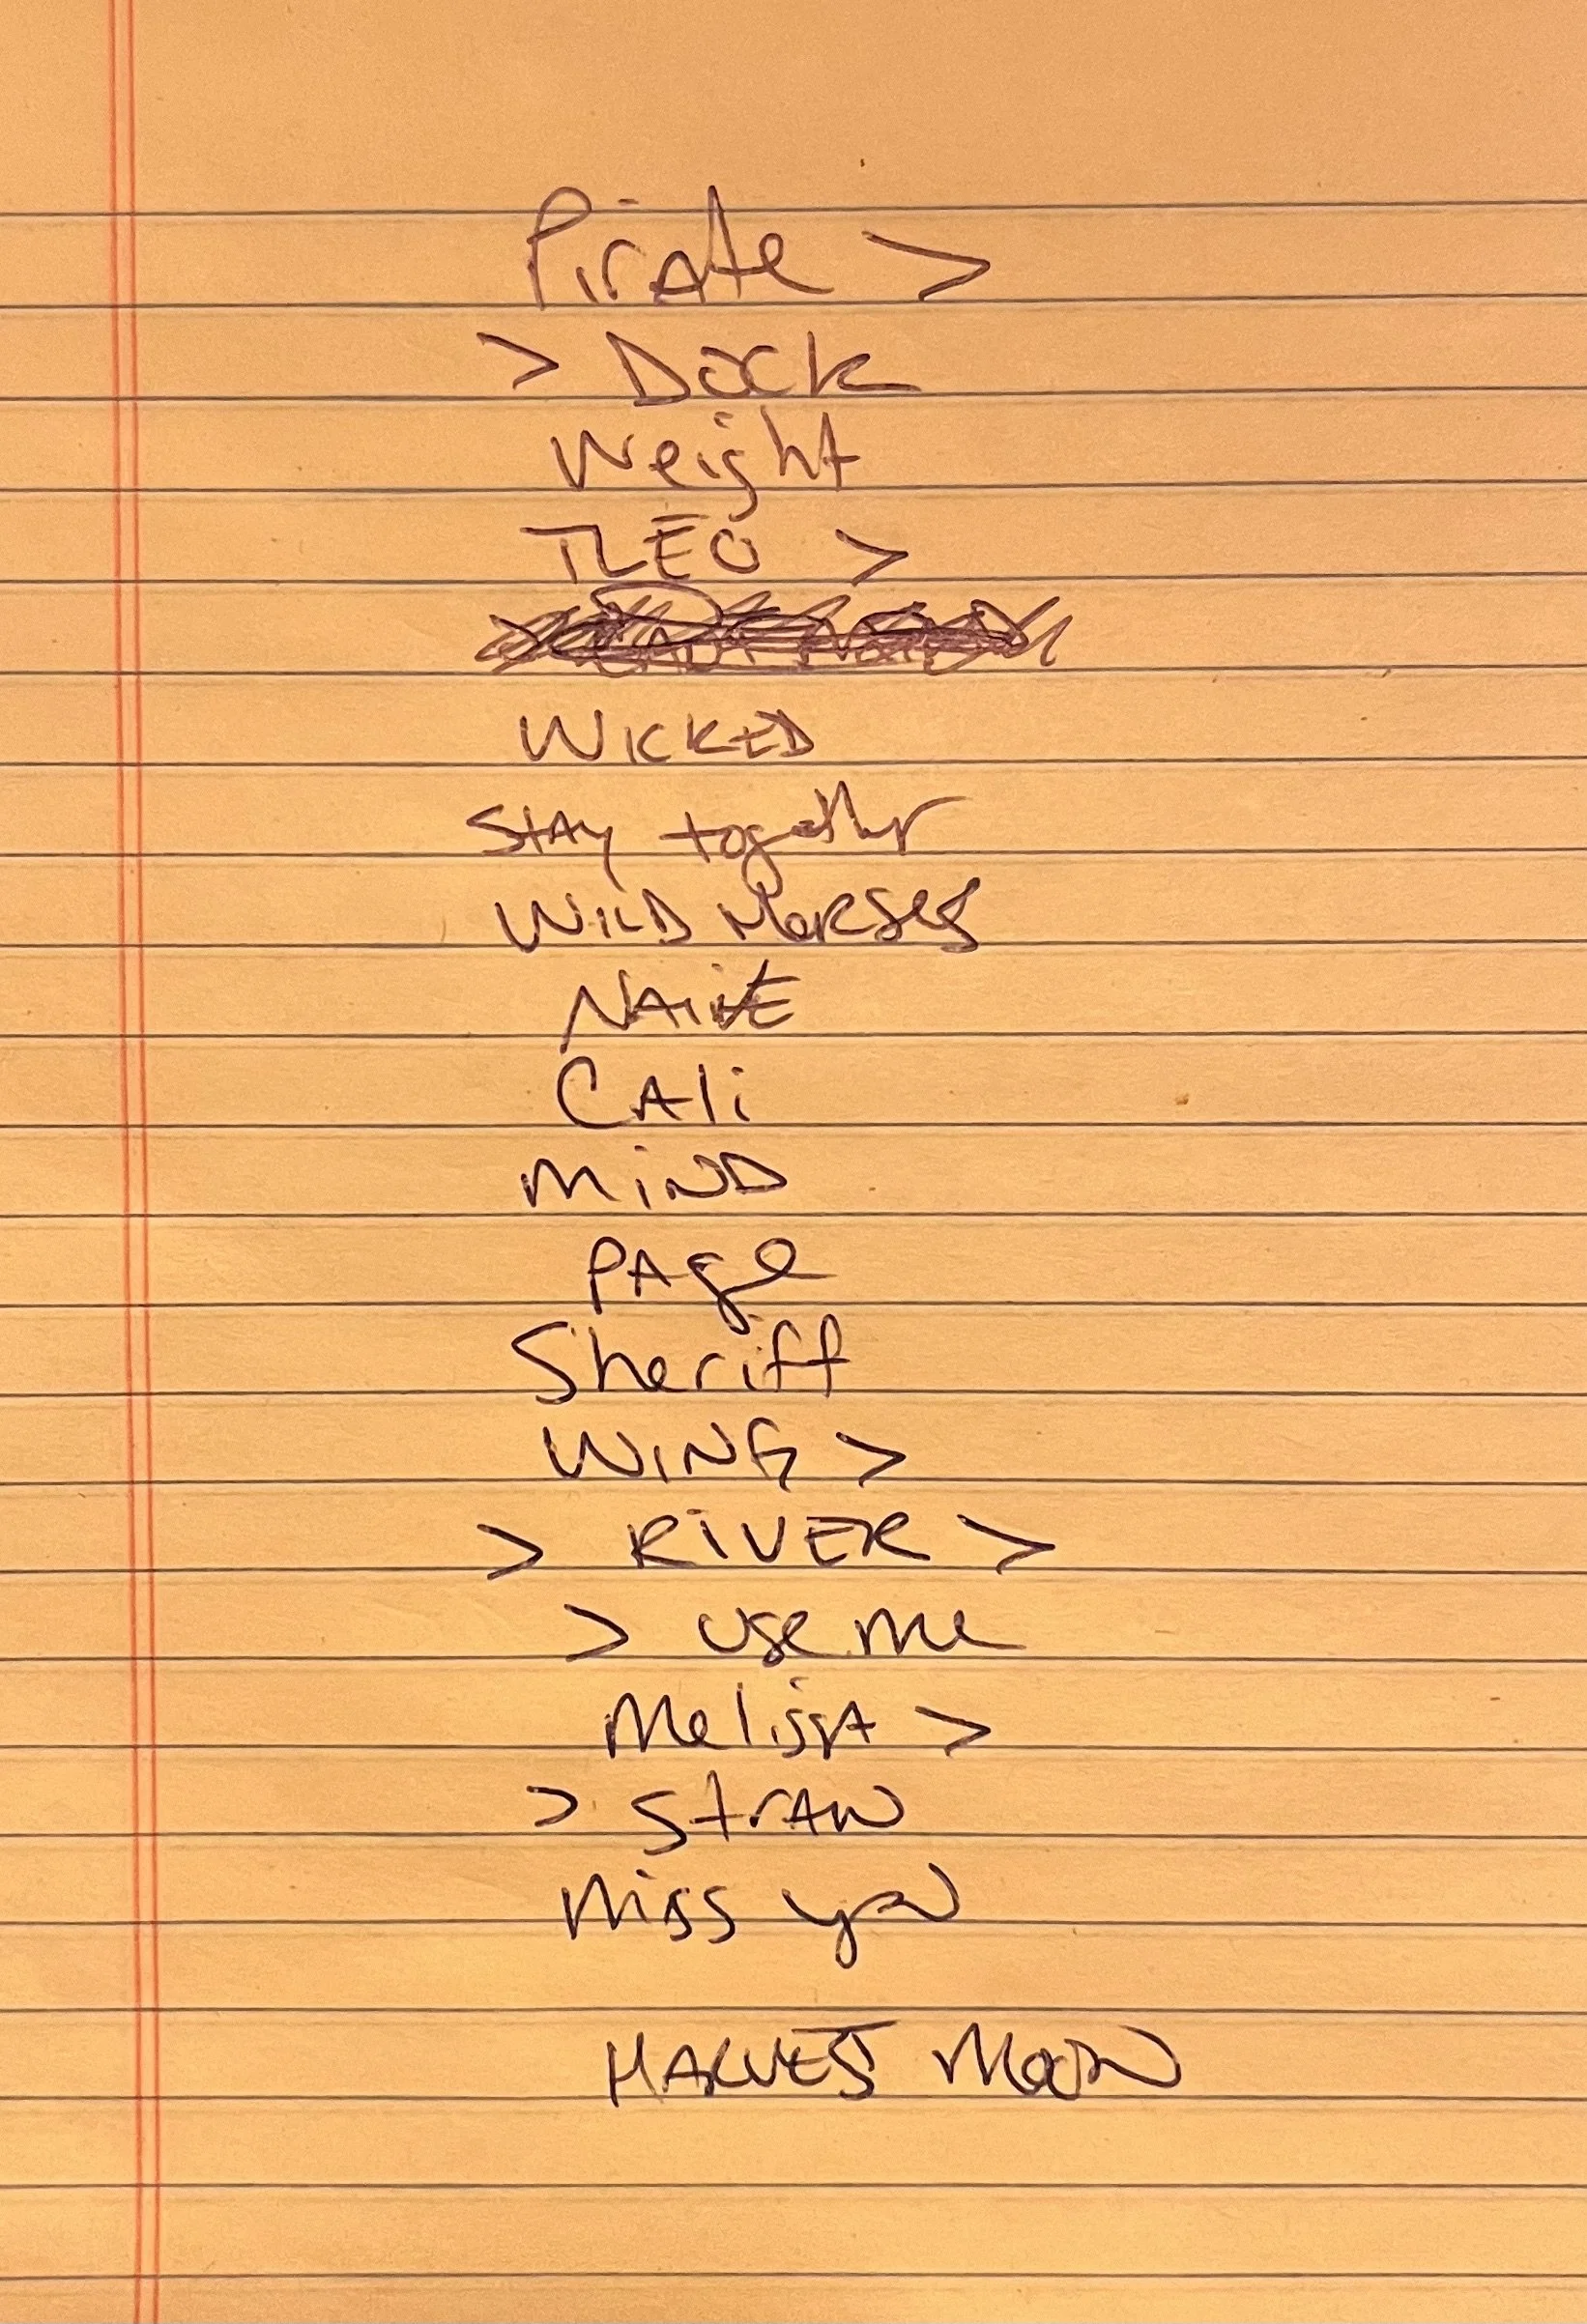 Pirate >
> Dock
Weight
TLEO >
WICKED
Stay together
WILD Horses
NAIVE
CALi
MiND
PAge
Sheriff
WING >
> RiVER >
> use me
Melissa >
> Straw
Miss you
HARVEST MOON